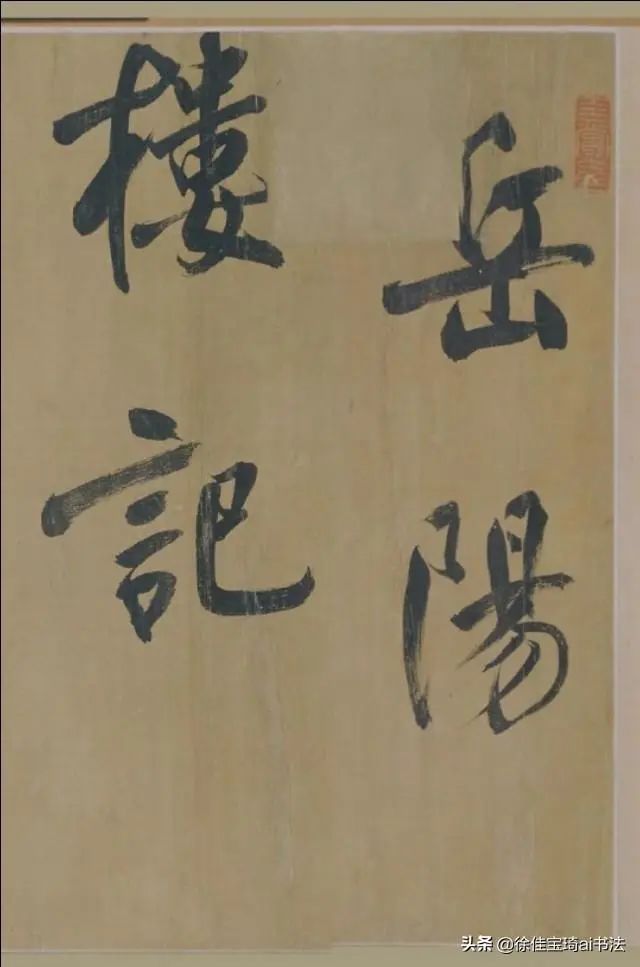 岳陽
樓記
头条 @徐佳宝琦ai书法